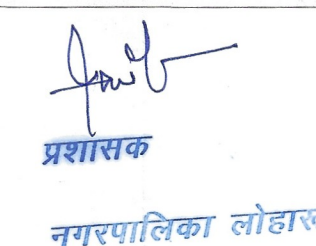 प्रशासक
नगरपालिका लोहारू